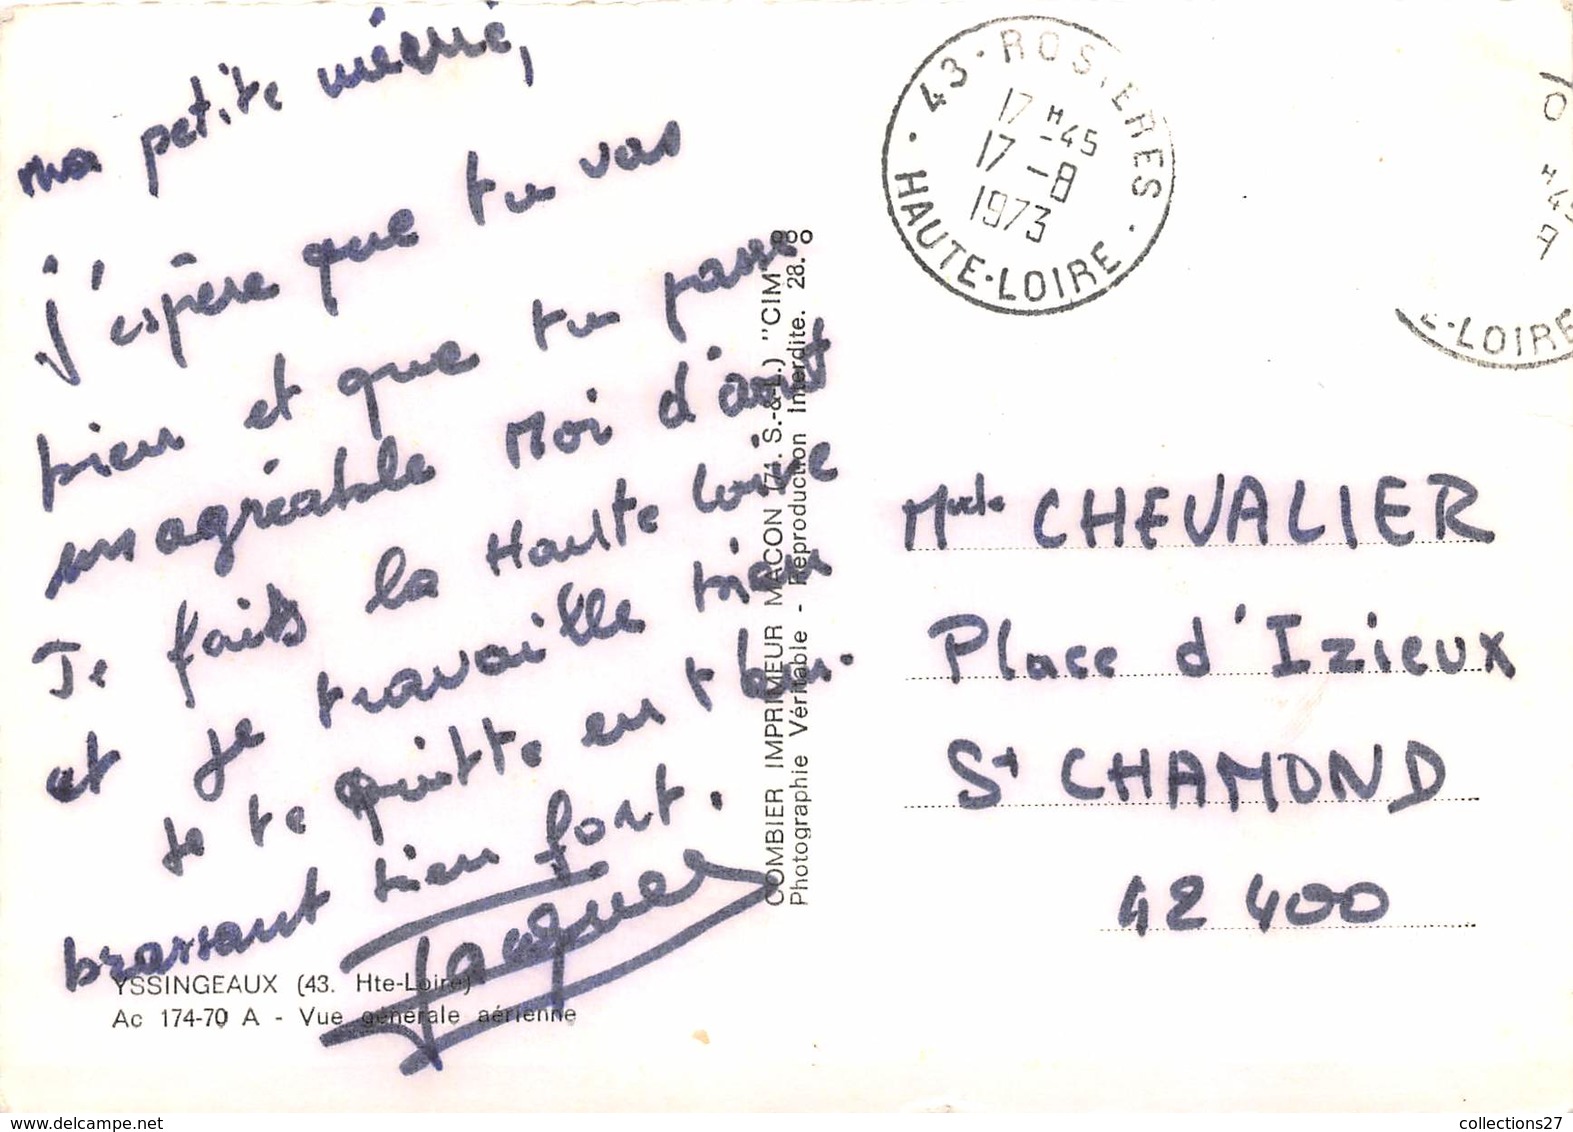 ma petite mémé,
j'espère que tu vas
bien et que tu passe
un agréable Moi d'août
Je fais la Haute Loire
et je travaille bien
Je te quitte en t'em-
brassant bien fort.
Jacques
YSSINGEAUX (43. Hte-Loire)
Ac 174-70 A - Vue générale aérienne
COMBIER IMPRIMEUR MACON (71. S.-&-L.) "CIM"
Photographie Véritable - Reproduction Interdite. 28.
43 · ROSIERES
17 H 45
17 -8
1973
HAUTE-LOIRE
E-LOIRE
CHEVALIER
Place d'Izieux
St CHAMOND
42 400
collections27